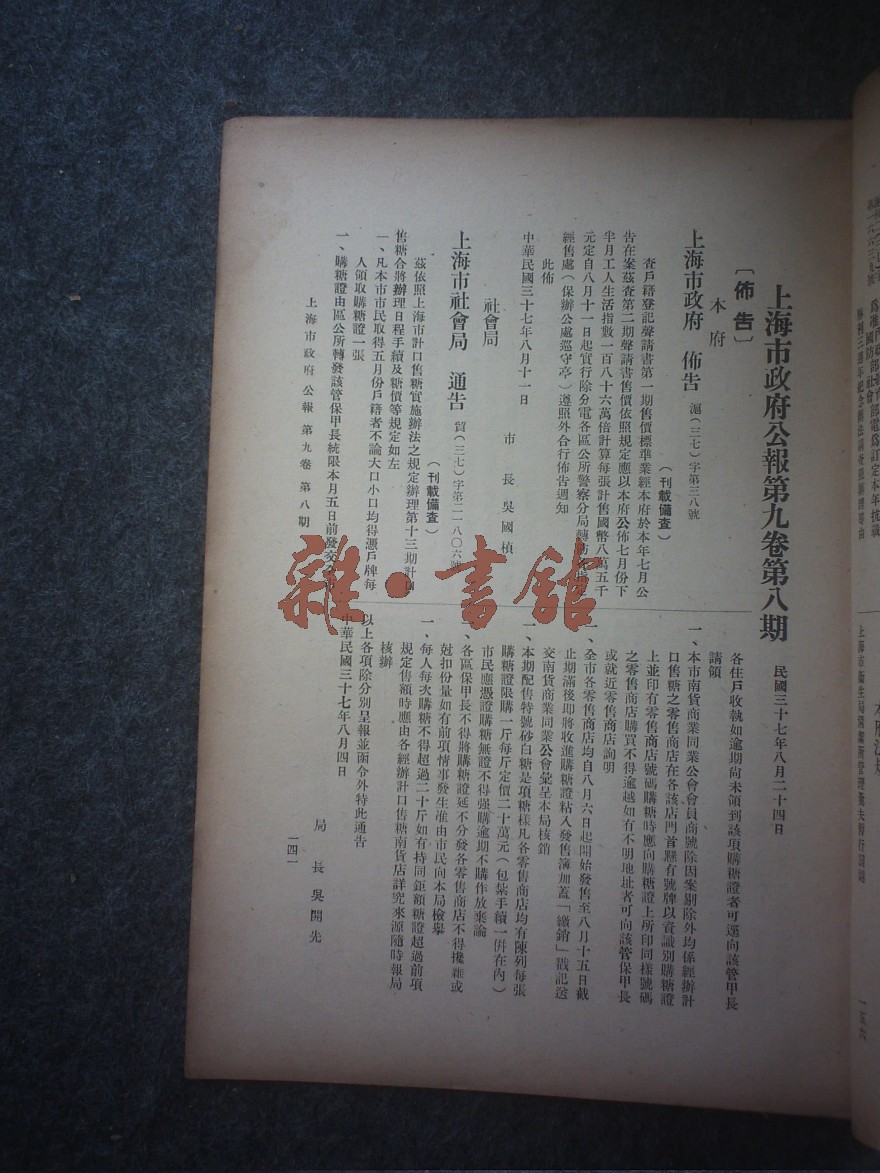 上海市政府公報第九卷第八期
民國三十七年八月二十四日
〔佈告〕
本府
上海市政府 佈告 滬(三七)字第三八號
(刊載備查)
查戶籍登記聲請書第一期售價標準業經本府於本年七月公
告在案茲查第二期聲請書售價依照規定應以本府公佈七月份下
半月工人生活指數一百八十六萬倍計算每張計售國幣八萬五千
元定自八月十一日起實行除分電各區公所警察分局轉飭
經售處(保辦公處巡守亭)遵照外合行佈告週知
此佈
中華民國三十七年八月十一日
市長 吳國楨
社會局
上海市社會局 通告 貿(三七)字第二一八〇六號
(刊載備查)
茲依照上海市計口售糖實施辦法之規定辦理第十三期計口
售糖合將辦理日程手續及糖價等規定如左
一、凡本市市民取得五月份戶籍者不論大口小口均得憑戶牌每
人領取購糖證一張
一、購糖證由區公所轉發該管保甲長統限本月五日前發交
各住戶收執如逾期尚未領到該項購糖證者可逕向該管保甲長
請領
一、本市南貨商業同業公會會員商號除因案剔除外均係經辦計
口售糖之零售商店在各該店門首懸有號牌以資識別購糖證
上並印有零售商店號碼購糖時應向購糖證上所印同樣號碼
之零售商店購買不得逾越如有不明地址者可向該管保甲長
或就近零售商店詢明
一、全市各零售商店均自八月六日起開始發售至八月十五日截
止期滿後即將收進購糖證粘入發售簿加蓋「繳銷」戳記送
交南貨商業同業公會彙呈本局核銷
一、本期配售特號砂白糖是項糖樣凡各零售商店均有陳列每張
購糖證限購一斤每斤定價二十萬元(包紮手續一併在內)
市民應憑證購糖無證不得强購逾期不購作放棄論
一、各區保甲長不得將購糖證延不分發各零售商店不得攙雜或
尅扣份量如有前項情事發生准由市民向本局檢舉
一、每人每次購糖不得超過二十斤如有持同鉅額糖證超過前項
規定售額時應由各經辦計口售糖南貨店詳究來源隨時報局
核辦
以上各項除分別呈報並函令外特此通告
中華民國三十七年八月四日
局長 吳開先
上海市政府公報 第九卷 第八期
一四一
雜·書館